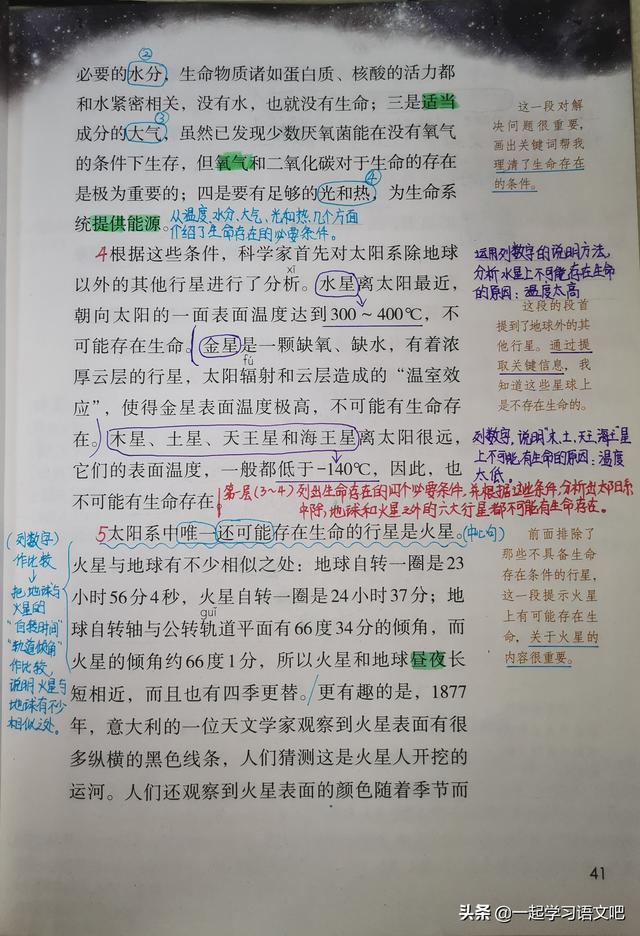 ②
必要的水分，生命物质诸如蛋白质、核酸的活力都
和水紧密相关，没有水，也就没有生命；三是适当
③
成分的大气，虽然已发现少数厌氧菌能在没有氧气
的条件下生存，但氧气和二氧化碳对于生命的存在
④
是极为重要的；四是要有足够的光和热，为生命系
统提供能源。
从温度、水分、大气、光和热几个方面
介绍了生命存在的必要条件。
这一段对解
决问题很重要，
画出关键词帮我
理清了生命存在
的条件。
4根据这些条件，科学家首先对太阳系除地球
xī
以外的其他行星进行了分析。水星离太阳最近，
朝向太阳的一面表面温度达到300～400℃，不
可能存在生命。金星是一颗缺氧、缺水，有着浓
fú
厚云层的行星，太阳辐射和云层造成的“温室效
应”，使得金星表面温度极高，不可能有生命存
在。木星、土星、天王星和海王星离太阳很远，
它们的表面温度，一般都低于-140℃，因此，也
不可能有生命存在。
运用列数字的说明方法，
分析水星上不可能存在生命
的原因：温度太高
这段的段首
提到了地球外的其
他行星。通过提
取关键信息，我
知道这些星球上
是不存在生命的。
列数字，说明木、土、天王、海王星
上不可能有生命的原因：温度
太低。
第一层(3~4)列出生命存在的四个必要条件，并根据这些条件，分析出太阳系
中除地球和火星之外的六大行星都不可能有生命存在。
5太阳系中唯一还可能存在生命的行星是火星。(中心句)
火星与地球有不少相似之处：地球自转一圈是23
小时56分4秒，火星自转一圈是24小时37分；地
guǐ
球自转轴与公转轨道平面有66度34分的倾角，而
火星的倾角约66度1分，所以火星和地球昼夜长
短相近，而且也有四季更替。更有趣的是，1877
年，意大利的一位天文学家观察到火星表面有很
多纵横的黑色线条，人们猜测这是火星人开挖的
运河。人们还观察到火星表面的颜色随着季节而
(列数字)
作比较
把地球与
火星的
“自转时间”
“轨道倾角”
作比较，
说明火星与
地球有不少
相似之处。
前面排除了
那些不具备生命
存在条件的行星，
这一段提示火星
上有可能存在生
命，关于火星的
内容很重要。
41
头条 @一起学习语文吧